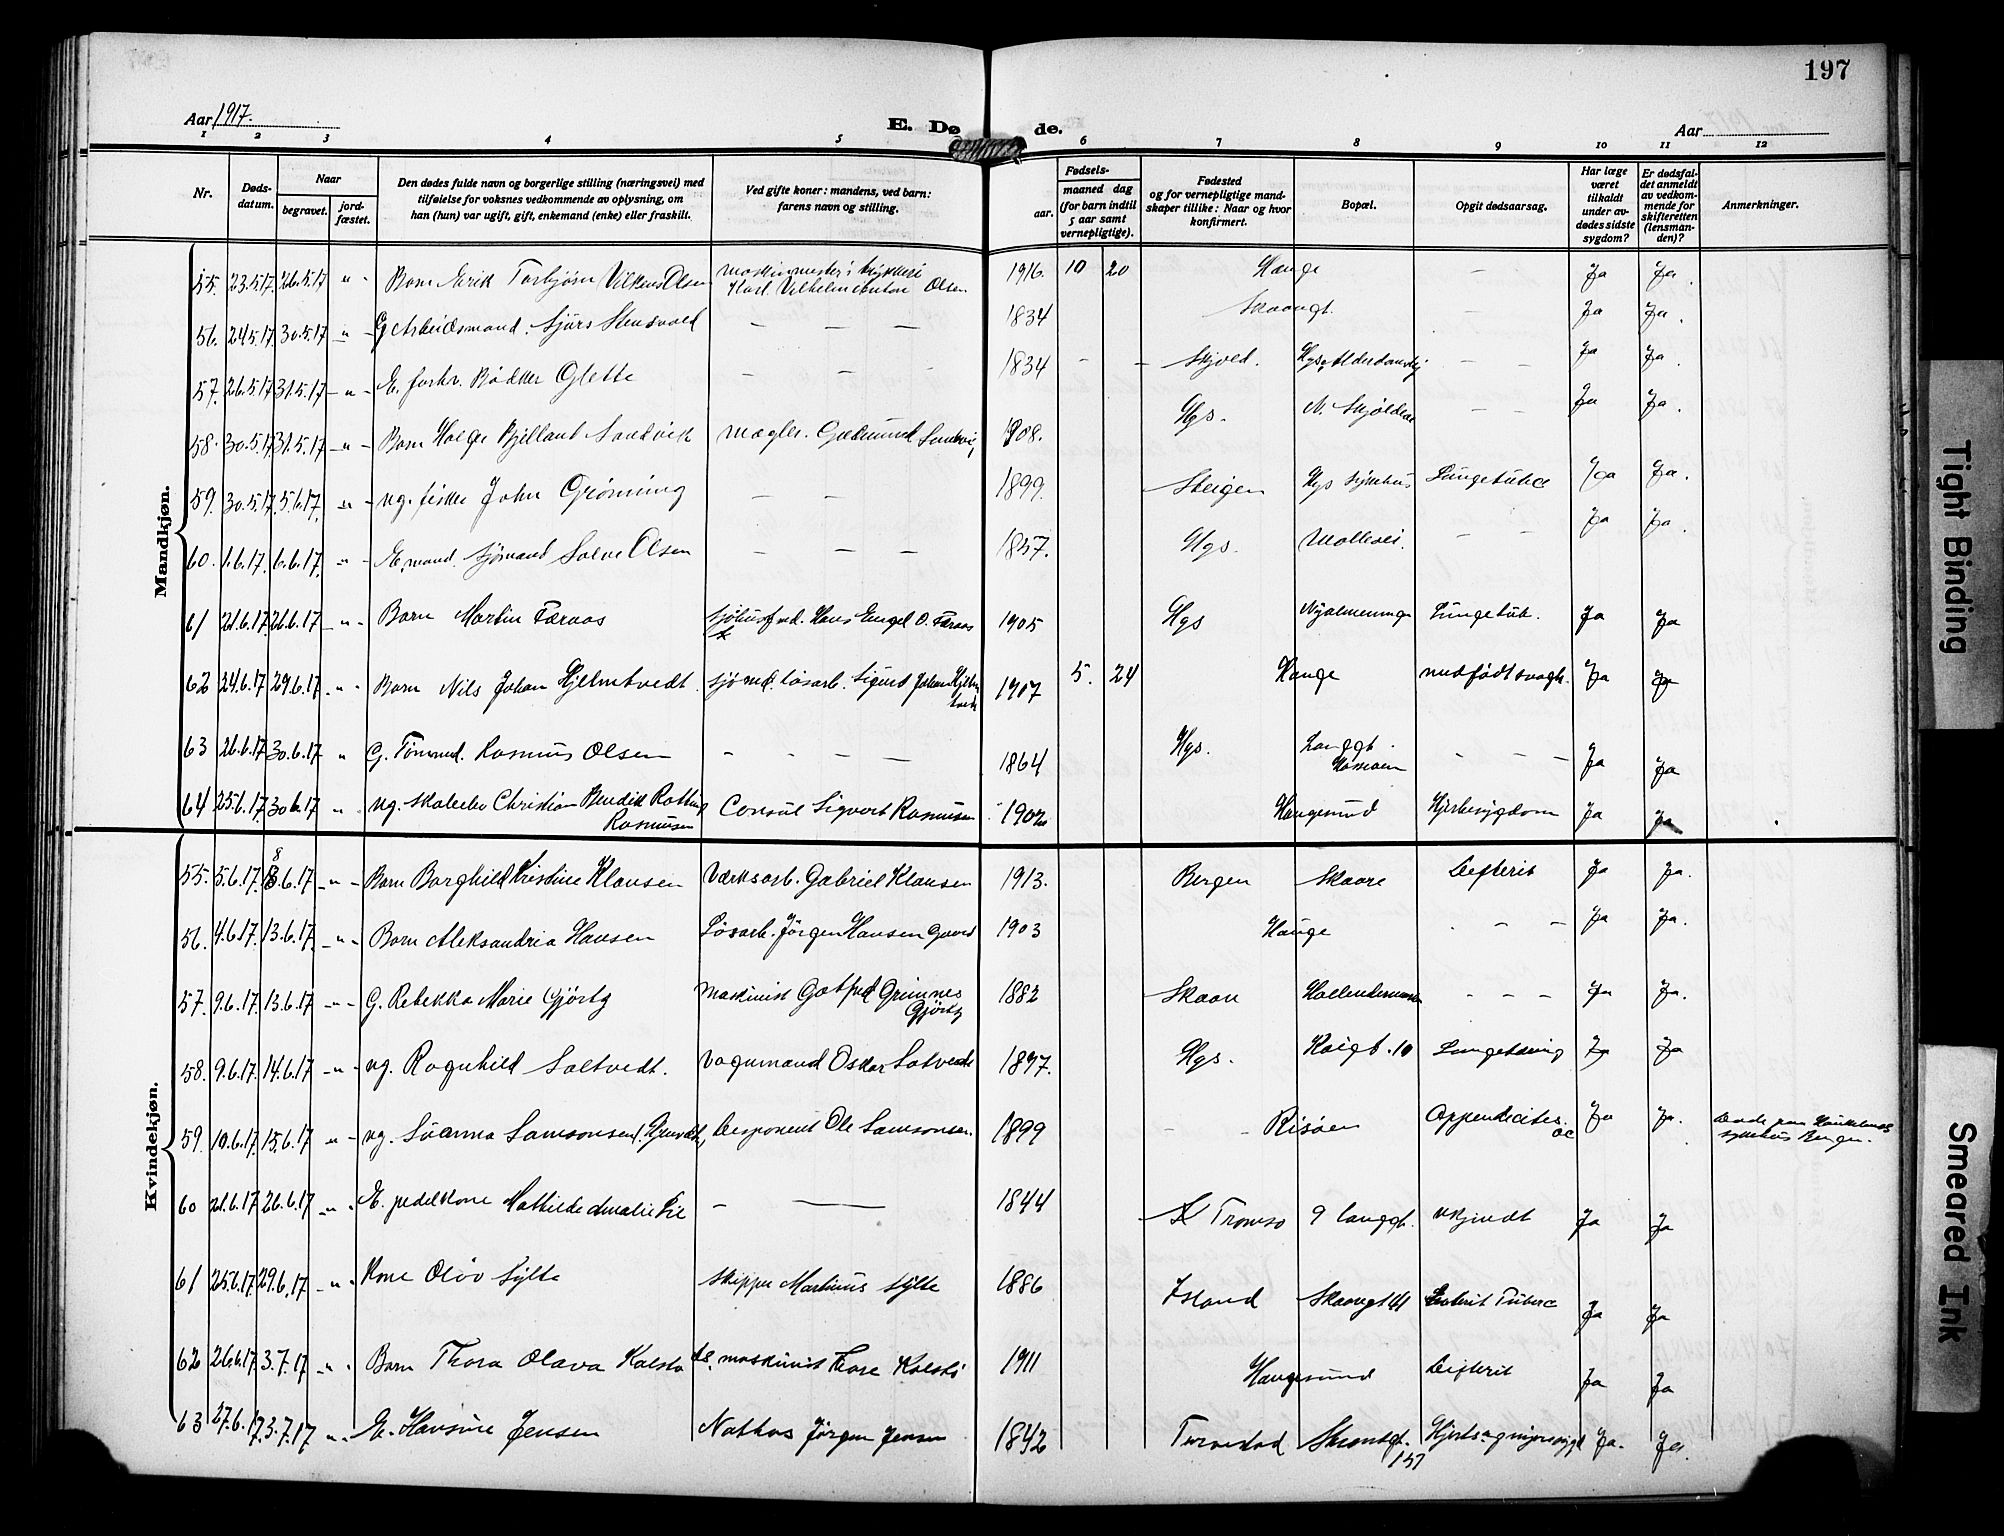 197
Aar 1917.
E. Dø de.
Aar
1 2 3 4 5 6 7 8 9 10 11 12
Nr.
Døds-
datum.
Naar
begravet.
jord-
fæstet.
Den dødes fulde navn og borgerlige stilling (næringsvei) med
tilføielse for voksnes vedkommende av oplysning, om
han (hun) var ugift, gift, enkemand (enke) eller fraskilt.
Ved gifte koner: mandens, ved barn:
farens navn og stilling.
Fødsels-
aar.
maaned dag
(for barn indtil
5 aar samt
vernepligtige).
Fødested
og for vernepligtige mand-
skaper tillike: Naar og hvor
konfirmert.
Bopæl.
Opgit dødsaarsag.
Har læge
været
tilkaldt
under av-
dødes sidste
sygdom?
Er dødsfal-
det anmeldt
av vedkom-
mende for
skifteretten
(lensman-
den)?
Anmerkninger.
Mandkjøn.
55. 23.5.17. 26.5.17 " Barn Erik Torbjørn Vilkens Olsen 1916. 10 20 Hauge — Ja Ja.
Karl Vilhelm Anton Olsen
56. 24.5.17 30.5.17 " G Arbeidsmand. Sjurs Stensvold — — — 1834 Skaaregt. — Ja Ja.
57. 26.5.17 31.5.17 " E. forhv. Bødker Glette — — — 1834 Skjold. — Ja Ja.
58. 30.5.17. 31.5.17 " Barn Helge Kjelland Sandvik Mægler. Gudmund Sandvig 1908. Hgs. N. Skjoldav — — Ja Ja.
59. 30.5.17 5.6.17. " ug. fisker John Grønning — — 1899. Steigen Hgs Sykehus Lungetuberc Ja Ja.
60. 1.6.17. 6.6.17. " E.mand. Sjømand Salve Olsen — — — 1857. Hgs. Mollvei. — — Ja Ja.
61 21.6.17 26.6.17 " Barn Martin Færaas Hans Engel O. Færaas 1905 Hgs Nyalmenninge Lungetub. Ja Ja
62 24.6.17 29.6.17 " Barn Nils Johan Hjelmtvedt. sjømd. løsarb. Sigurd Johan Hjelm 1917 5. 24 Hauge medfødt svagh. Ja Ja
tvedt
63 26.6.17 30.6.17 " G. Tømmd. Rasmus Olsen — — — 1864 Hgs. Langgt. — — — Ja Ja
64 25.6.17 30.6.17 " ug. skoleelev Christian Bendik Rotting Consul Sigvart Rasmussen 1902 Haugesund Hjertesygdom Ja Ja
Rasmussen
Kvindekjøn.
55. 5.6.17. 8.6.17 " Barn Borghild Kristine Klausen Værksarb. Gabriel Klausen 1913. Bergen Skaare Difterit Ja Ja.
56. 4.6.17. 13.6.17. " Barn Aleksandria Hansen Løsarb. Jørgen Hansen 1903 Hauge — — Ja Ja.
57. 9.6.17. 13.6.17 " G. Rebekka Marie Gjørtz Maskinist Gotfred Grimnes 1882 Skaare — — — Ja Ja.
Gjørtz
58. 9.6.17. 14.6.17 " ug. Ragnhild Saltvedt. Vognmand Oskar Saltvedt 1897. Hgs. Kaigt. 10 Ja Ja
59. 10.6.17. 15.6.17 " ug. Susanna Samsonsen Disponent Ole Samsonsen. 1899 — — Risøen Appendicites. Ja Ja.
oc
sykehus Bergen.
60 21.6.17 26.6.17 " E. pedelkone Mathilde Amalie — — 1844 Tromsø 9 Langgt. ukjendt Ja Ja
61 25.6.17 29.6.17 " Kone Oløv Sylte Skipper Martinus Sylte 1886 Island Skaaregt 41 Tuberc Ja Ja
62 26.6.17 3.7.17 " Barn Thora Olava Kalstø ds. maskinist Tore Kalstø 1911 Haugesund Difterit Ja Ja
63 27.6.17 3.7.17 " E. Hansine Jensen Jørgen Jensen 1842 Torvestad Ja. Ja.
157
Tight Binding
Smeared Ink